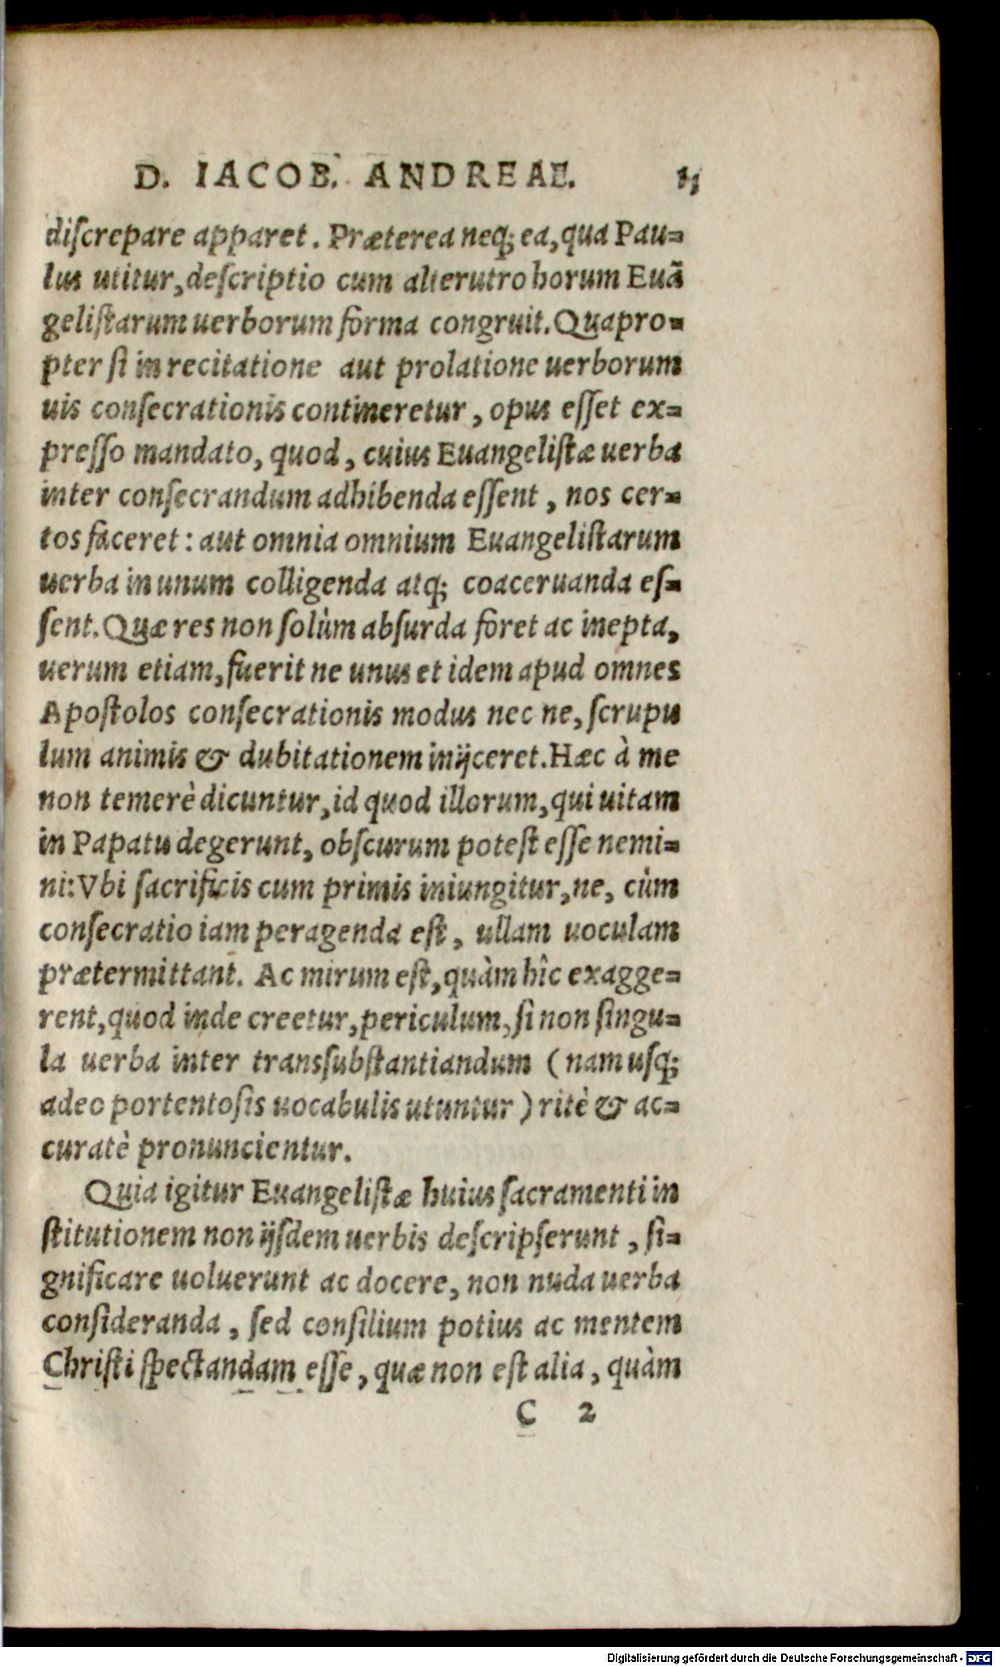 D. IACOB. ANDREAE.
discrepare apparet. Præterea neq; ea, qua Pau-
lus utitur, descriptio cum alterutro horum Euā
gelistarum uerborum forma congruit. Quapro-
pter si in recitatione aut prolatione uerborum
uis consecrationis contineretur, opus esset ex-
presso mandato, quod, cuius Euangelistæ uerba
inter consecrandum adhibenda essent, nos cer-
tos faceret: aut omnia omnium Euangelistarum
uerba in unum colligenda atq; coaceruanda es-
sent. Quæ res non solùm absurda foret ac inepta,
uerum etiam, fuerit ne unus et idem apud omnes
Apostolos consecrationis modus nec ne, scrupu
lum animis & dubitationem inijceret. Hæc à me
non temerè dicuntur, id quod illorum, qui uitam
in Papatu degerunt, obscurum potest esse nemi-
ni: Vbi sacrificis cum primis iniungitur, ne, cùm
consecratio iam peragenda est, ullam uoculam
prætermittant. Ac mirum est, quàm hîc exagge-
rent, quod inde creetur, periculum, si non singu-
la uerba inter transsubstantiandum (nam usq;
adeo portentosis uocabulis utuntur) ritè & ac-
curatè pronuncientur.
Quia igitur Euangelistæ huius sacramenti in
stitutionem non ijsdem uerbis descripserunt, si-
gnificare uoluerunt ac docere, non nuda uerba
consideranda, sed consilium potius ac mentem
Christi spectandam esse, quæ non est alia, quàm
C 2
Digitalisierung gefördert durch die Deutsche Forschungsgemeinschaft - DFG